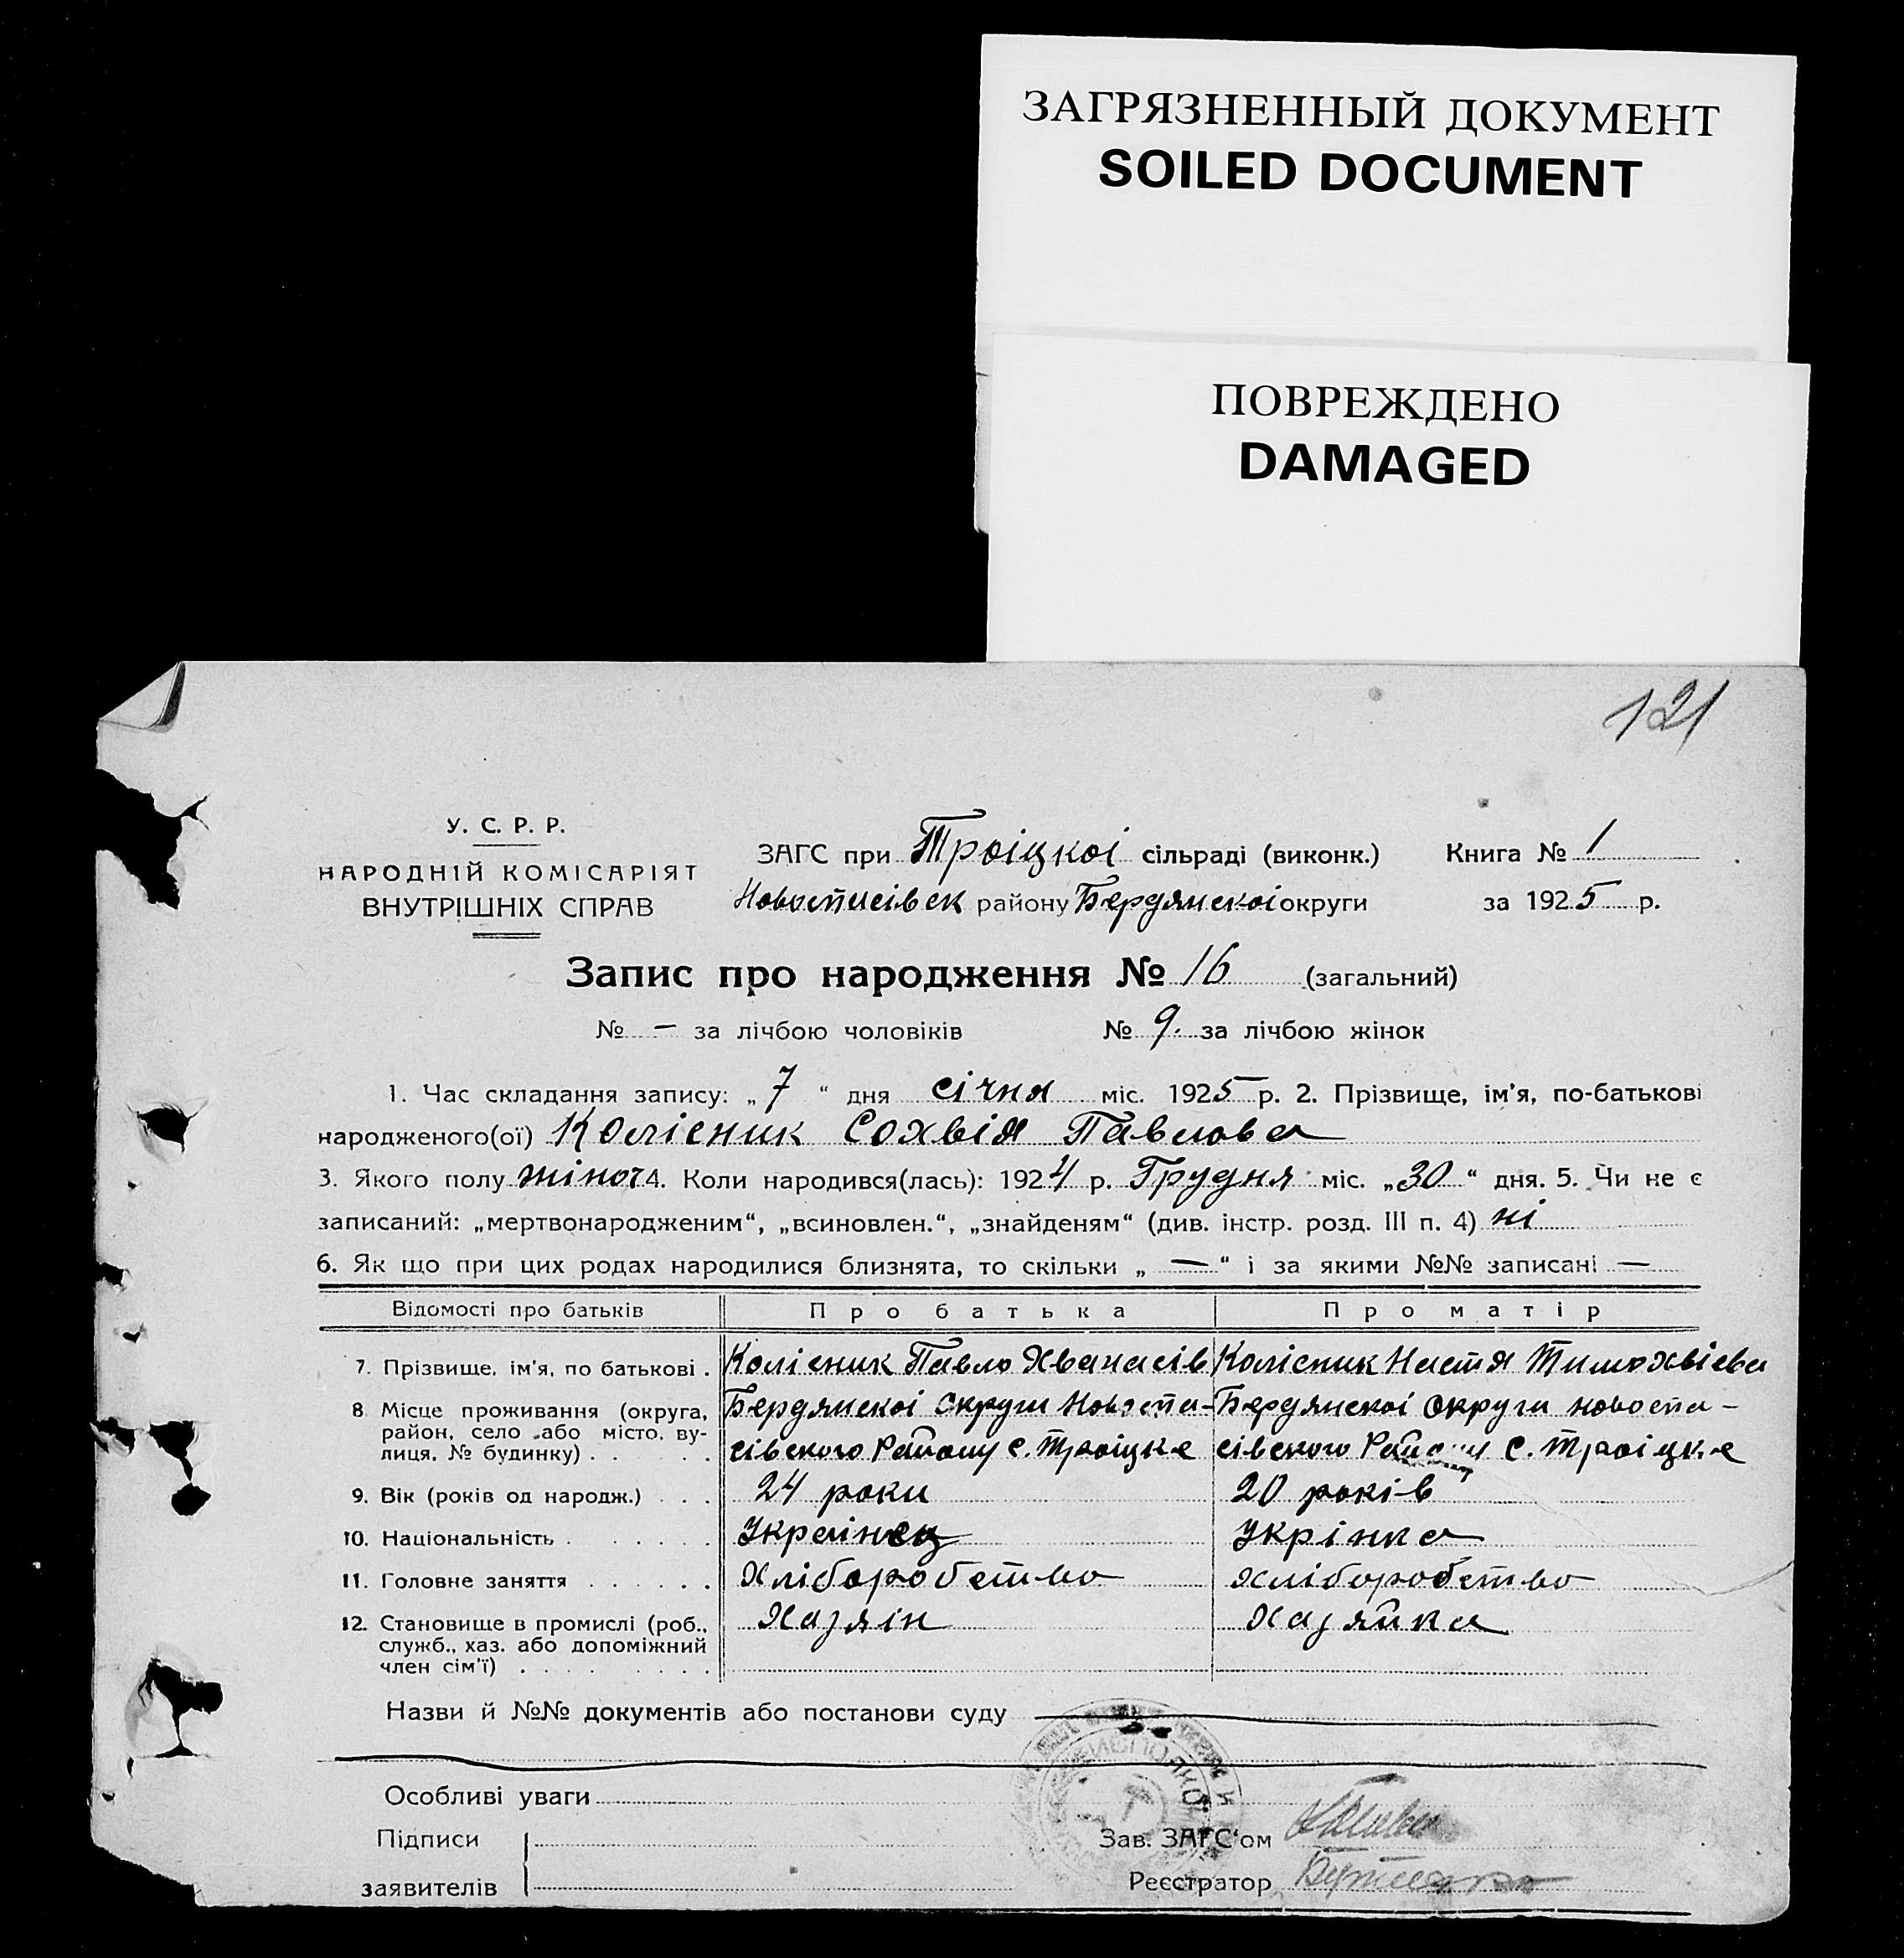 ЗАГРЯЗНЕННЫЙ ДОКУМЕНТ
SOILED DOCUMENT
ПОВРЕЖДЕНО
DAMAGED
121
У. С. Р. Р.
НАРОДНІЙ КОМІСАРІЯТ
ВНУТРІШНІХ СПРАВ
ЗАГС при Троіцкоі сільраді (виконк.) Книга № 1
Новоспасівск району Бердянскоі округи за 1925 р.
Запис про народження № 16 (загальний)
№ — за лічбою чоловіків № 9. за лічбою жінок
1. Час складання запису: „ 7 “ дня січня міс. 1925 р. 2. Прізвище, ім'я, по-батькові
народженого(ої) Колісник Сохвія Павлова
3. Якого полу жіноч 4. Коли народився(лась): 1924 р. Грудня міс. „30“ дня. 5. Чи не є
записаний: „мертвонародженим“, „всиновлен.“, „знайденям“ (див. інстр. розд. III п. 4) ні
6. Як що при цих родах народилися близнята, то скільки „ — “ і за якими №№ записані —
Відомості про батьків Про батька Про матір
7. Прізвище, ім'я, по батькові . Колісник Павло Хванасів Колісник Настя Тимохвієва
8. Місце проживання (округа, Бердянскоі Округи Новоспа- Бердянскоі Округи новоспа-
район, село або місто, ву- сівского Району с. Троіцке сівского Району с. Троіцке
лиця, № будинку) . . . . .
9. Вік (років од народж.) . . . 24 роки 20 років
10. Національність . . . . . . Украінец Укрінка
11. Головне заняття . . . . . . Хліборобство хліборобство
12. Становище в промислі (роб., Хазяін Хазяйка
служб., хаз. або допоміжний
член сім'ї) . . . . . . . .
Назви й №№ документів або постанови суду
Особливі уваги
Підписи Зав. ЗАГС'ом
заявителів Реєстратор